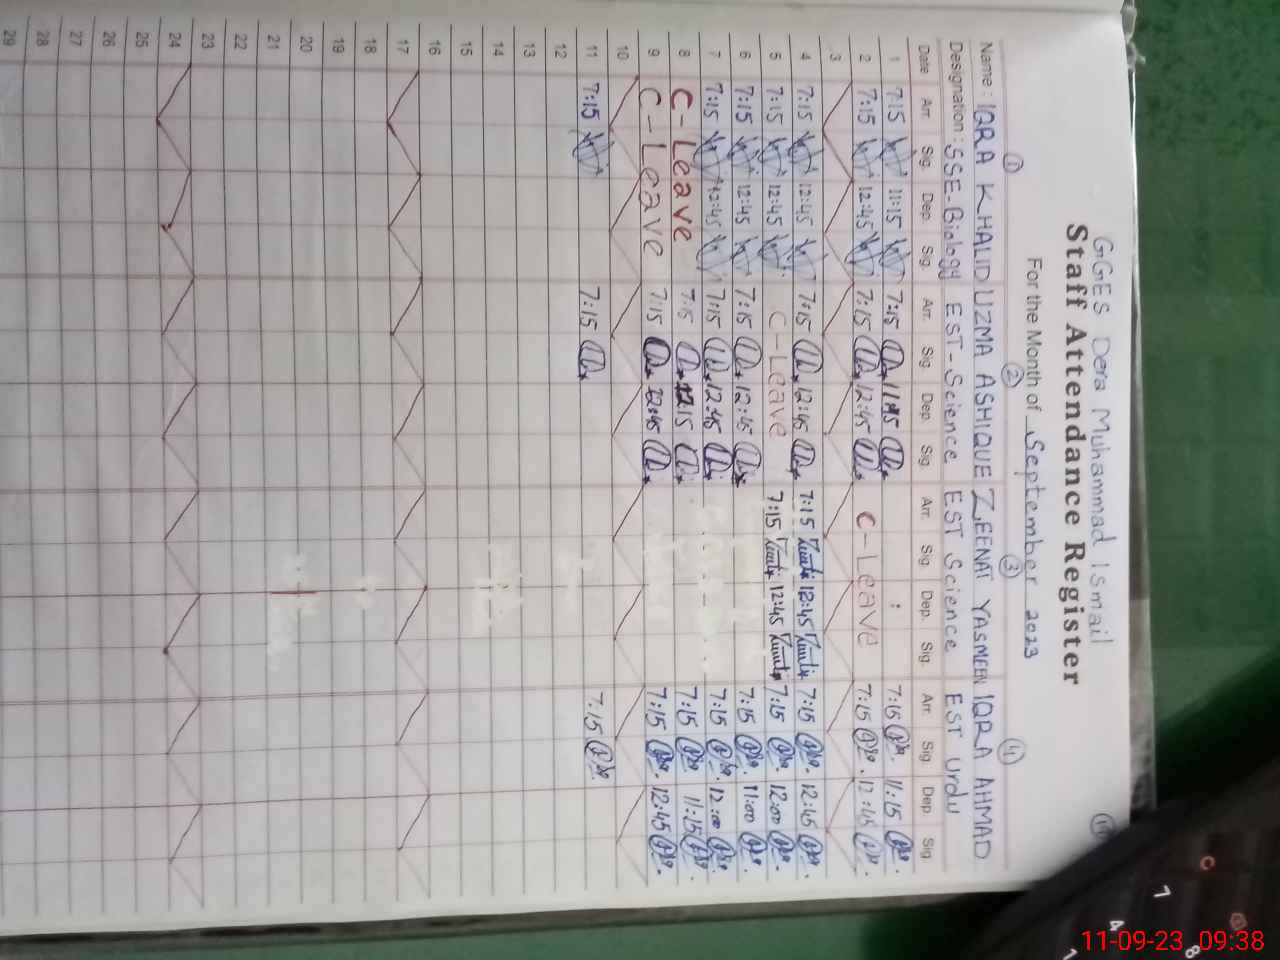 GGES Dera Muhammad Ismail
Staff Attendance Register
For the Month of September 2023
① ② ③ ④
Name : IQRA KHALID UZMA ASHIQUE ZEENAT YASMEEN IQRA AHMAD
Designation : SSE-Biology EST-Science EST Science EST Urdu
Date Arr. Sig. Dep. Sig. Arr. Sig. Dep. Sig. Arr. Sig. Dep. Sig. Arr. Sig. Dep. Sig.
1 7:15 11:15 7:15 11:15 : 7:15 11:15
2 7:15 12:45 7:15 12:45 C-Leave 7:15 12:45
3
4 7:15 12:45 7:15 12:45 7:15 12:45 7:15 12:45
5 7:15 12:45 C-Leave 7:15 12:45 7:15 12:00
6 7:15 12:45 7:15 12:45 7:15 11:00
7 7:15 12:45 7:15 12:45 7:15 12:00
8 C-Leave 7:15 7:15 11:15
9 C-Leave 7:15 12:45 7:15 12:45
10
11 7:15 7:15 7:15
12
13
14
15
16
17
18
19
20
21
22
23
24
25
26
27
28
29
C
7
4
8
1
11-09-23 09:38